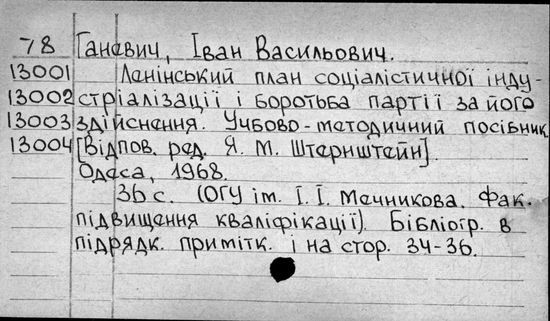 78 Ганевич, Іван Васильович.
13001 Ленінський план соціалістичної інду-
13002 стріалізації і боротьба партії за його
13003 здійснення. Учбово-методичний посібник
13004 [Відпов. ред. Я. М. Штернштейн].
Одеса, 1968.
36 с. (ОГУ ім. І. І. Мечникова. Фак.
підвищення кваліфікації). Бібліогр. в
підрядк. примітк. і на стор. 34-36.